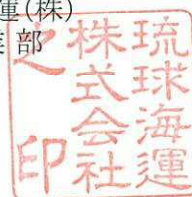 運(株)
業部
琉球海運
株式会社
之印